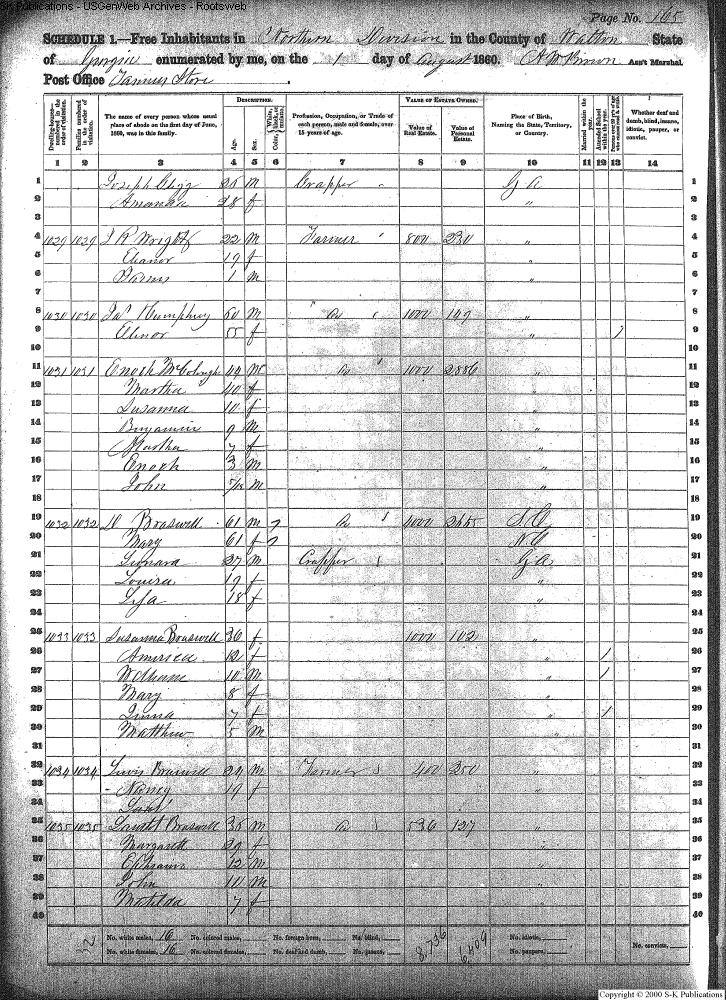 S-K Publications - USGenWeb Archives - Rootsweb
Page No. 165
SCHEDULE 1.—Free Inhabitants in Northern Division in the County of Walton State
of Georgia enumerated by me, on the 1 day of August 1860. Ass't Marshal.
Post Office Tanners Store.
DESCRIPTION. VALUE OF ESTATE OWNED.
Dwelling-houses— numbered in the order of visitation. Families numbered in the order of visitation. The name of every person whose usual place of abode on the first day of June, 1860, was in this family. Age. Sex. Color, White, black, or mulatto. Profession, Occupation, or Trade of each person, male and female, over 15 years of age. Value of Real Estate. Value of Personal Estate. Place of Birth, Naming the State, Territory, or Country. Married within the year. Attended School within the year. Whether deaf and dumb, blind, insane, idiotic, pauper, or convict.
1 2 3 4 5 6 7 8 9 10 11 12 13 14
1 Joseph 25 m Crapper Ga 1
2 Amanda 28 f " 2
3 3
4 1029 1029 J R Wright 22 M Farmer 800 230 " 4
5 Eleanor 19 f " 5
6 1 M " 6
7 7
8 1030 1030 Jas Humphrey 60 M " Do 1000 149 " 8
9 Elinor 55 f " 1 9
10 10
11 1031 1031 Enoch 44 M Do 1000 2886 " 11
12 Martha 40 f " 12
13 Susanna 10 f " 13
14 Benjamin 9 M " 14
15 Martha 7 f " 15
16 Enoch 3 M " 16
17 John 5/12 M " 17
18 18
19 1032 1032 W Braswell 61 m Do 4000 2445 S.C. 19
20 Mary 61 f N.C. 20
21 Leonard 27 M Crapper Ga 21
22 Louisa 19 f " 22
23 18 f " 23
24 24
25 1033 1033 Susanna Braswell 36 f 1000 102 " 25
26 America 12 f " 1 26
27 10 M " 1 27
28 Mary 8 f " 28
29 7 f " 1 29
30 Matthew 5 M " 30
31 31
32 1034 1034 Lewis Braswell 24 M Farmer 400 250 " 32
33 Nancy 19 f " 33
34 34
35 1035 1035 Braswell 35 M Do 536 127 " 35
36 Margarett 29 f " 36
37 12 M " 37
38 John 11 M " 38
39 Matilda 7 f " 39
40 40
No. white males, 16 No. colored males, No. foreign born, No. blind, 8,736 6,409 No. idiotic,
No. white females, 16 No. colored females, No. deaf and dumb, No. insane, No. paupers, No. convicts,
Copyright © 2000 S-K Publications